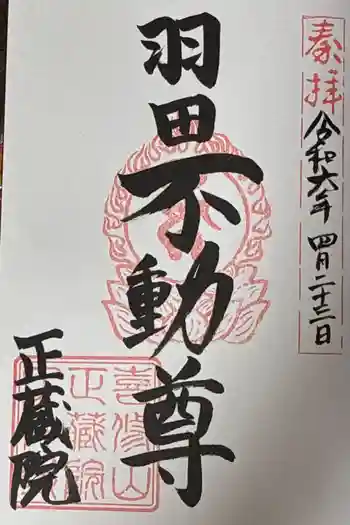 奉拝
令和六年 四月二十三日
羽田不動尊
正蔵院
喜修山
正蔵院